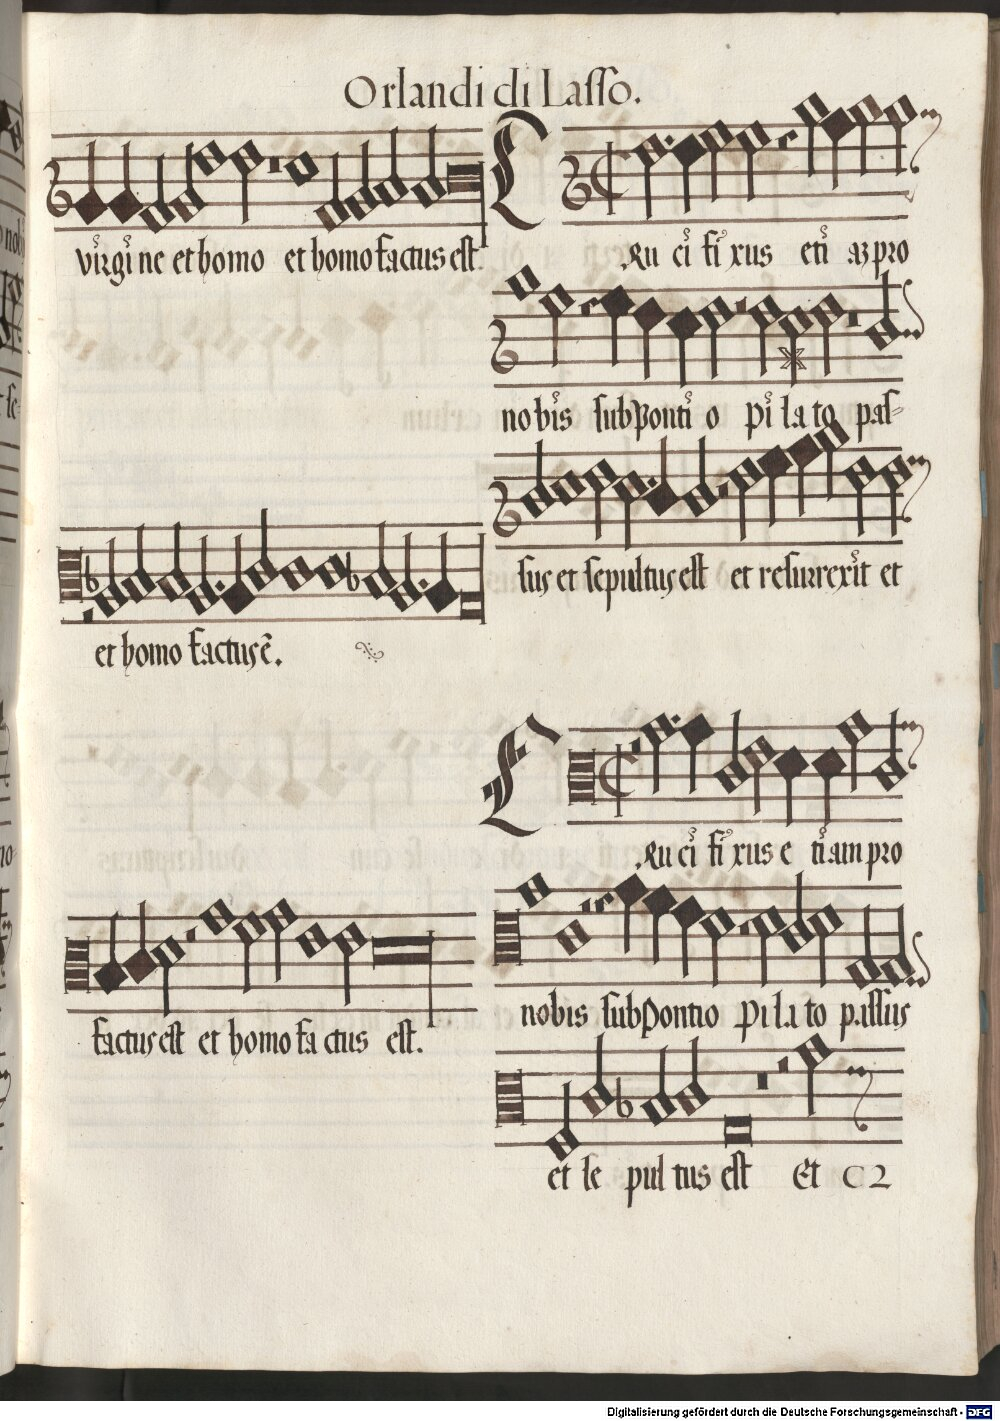 Orlandi di Lasso.
virgine et homo et homo factus est.
et homo factus ē.
factus est et homo factus est.
CRu ci fi xus eti az pro
nobis sub Ponti o Pi la to pas-
sus et sepultus est et resurrexit et
CRu ci fi xus e tiam pro
nobis sub Pontio Pi la to passus
et se pul tus est Et C 2
Digitalisierung gefördert durch die Deutsche Forschungsgemeinschaft - DFG